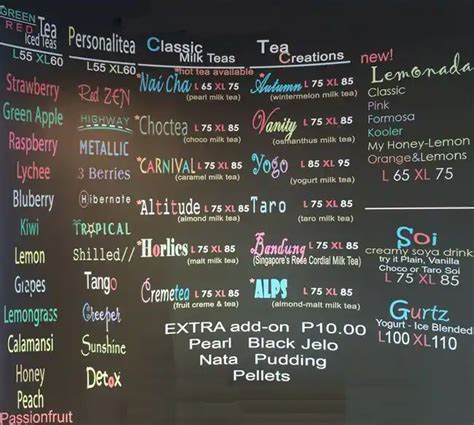 GREEN
RED Tea
Iced Teas
L55 XL60
Strawberry
Green Apple
Raspberry
Lychee
Bluberry
Kiwi
Lemon
Grapes
Lemongrass
Calamansi
Honey
Peach
Passionfruit
Personalitea
L55 XL60
Red ZEN
HIGHWAY
METALLIC
3 Berries
Hibernate
TROPICAL
Shilled//
Tango
Creeper
Sunshine
Detox
Classic
Milk Teas
*hot tea available
*Nai Cha L 65 XL 75
(pearl milk tea)
*Choctea L 75 XL 85
(choco milk tea)
*CARNIVAL L 75 XL 85
(caramel milk tea)
*Altitude L 75 XL 85
(almond milk tea)
*Horlics L 75 XL 85
(malt milk tea)
Cremetea L 75 XL 85
(fruit creme & tea)
Tea
Creations
*Autumn L 75 XL 85
(wintermelon milk tea)
Vanity L 75 XL 85
(osmanthus milk tea)
Yogo L 75 XL 85
(yogurt milk tea)
Taro L 75 XL 85
(taro milk tea)
Bandung L 75 XL 85
(Singapore's Rose Cordial Milk Tea)
*ALPS L 75 XL 85
(almond-malt milk tea)
EXTRA add-on P10.00
Pearl Black Jelo
Nata Pudding
Pellets
new!
Lemonada
Classic
Pink
Formosa
Kooler
My Honey-Lemon
Orange&Lemons
L 65 XL 75
Soi
creamy soya drink
try it Plain, Vanilla
Choco or Taro Soi
L 75 XL 85
Gurtz
Yogurt - Ice Blended
L100 XL110